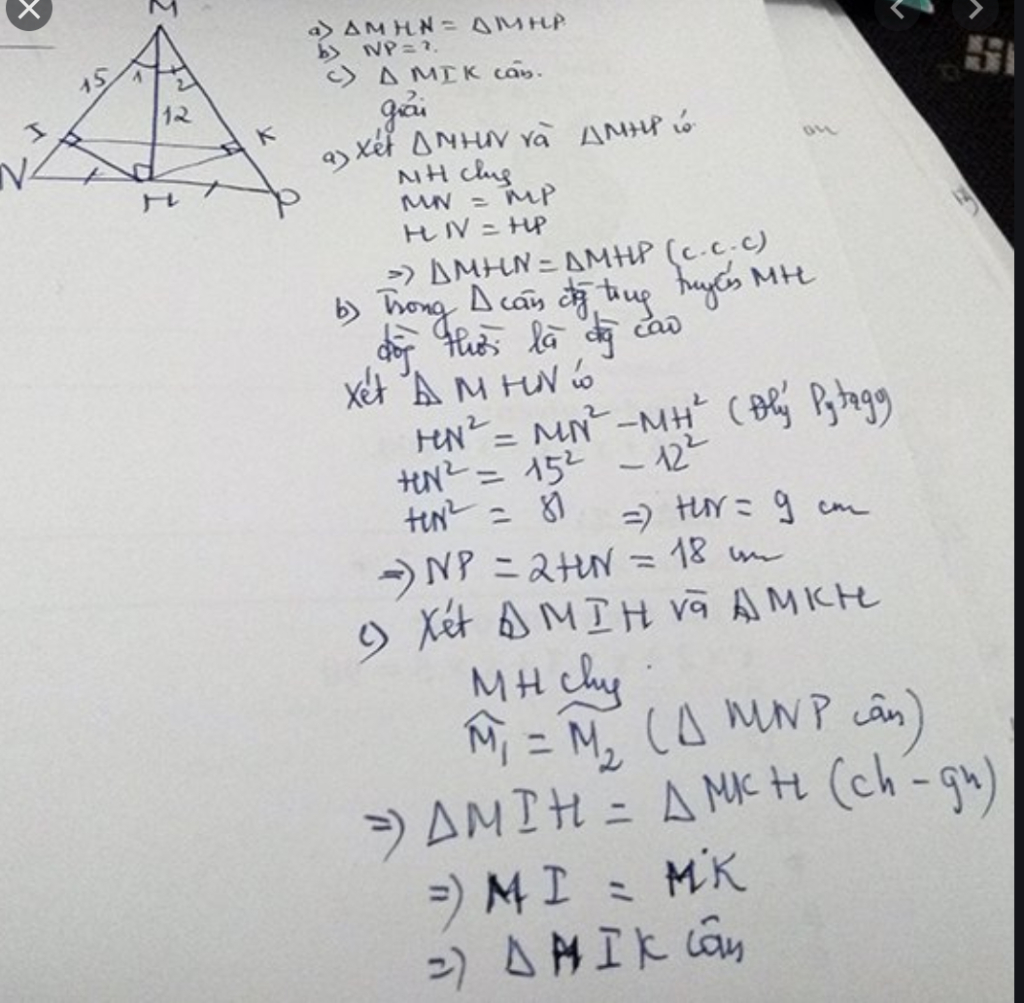 M
15
1
2
12
I
K
N
H
P
a) ΔMHN = ΔMHP
b) NP = ?
c) Δ MIK cân.
giải
a) Xét ΔMHN và ΔMHP có
MH chg
MN = MP
HN = HP
=) ΔMHN = ΔMHP (c.c.c)
b) Trong Δ cân đg trug tuyến MH
đồg thời là đg cao
Xét Δ MHN có
HN² = MN² - MH² (Đlý Pytago)
HN² = 15² - 12²
HN² = 81 => HN = 9 cm
=) NP = 2HN = 18 cm
c) Xét Δ MIH và ΔMKH
MH chg
M̂₁ = M̂₂ (Δ MNP cân)
=) ΔMIH = ΔMKH (ch - gn)
=) MI = MK
=) ΔMIK cân